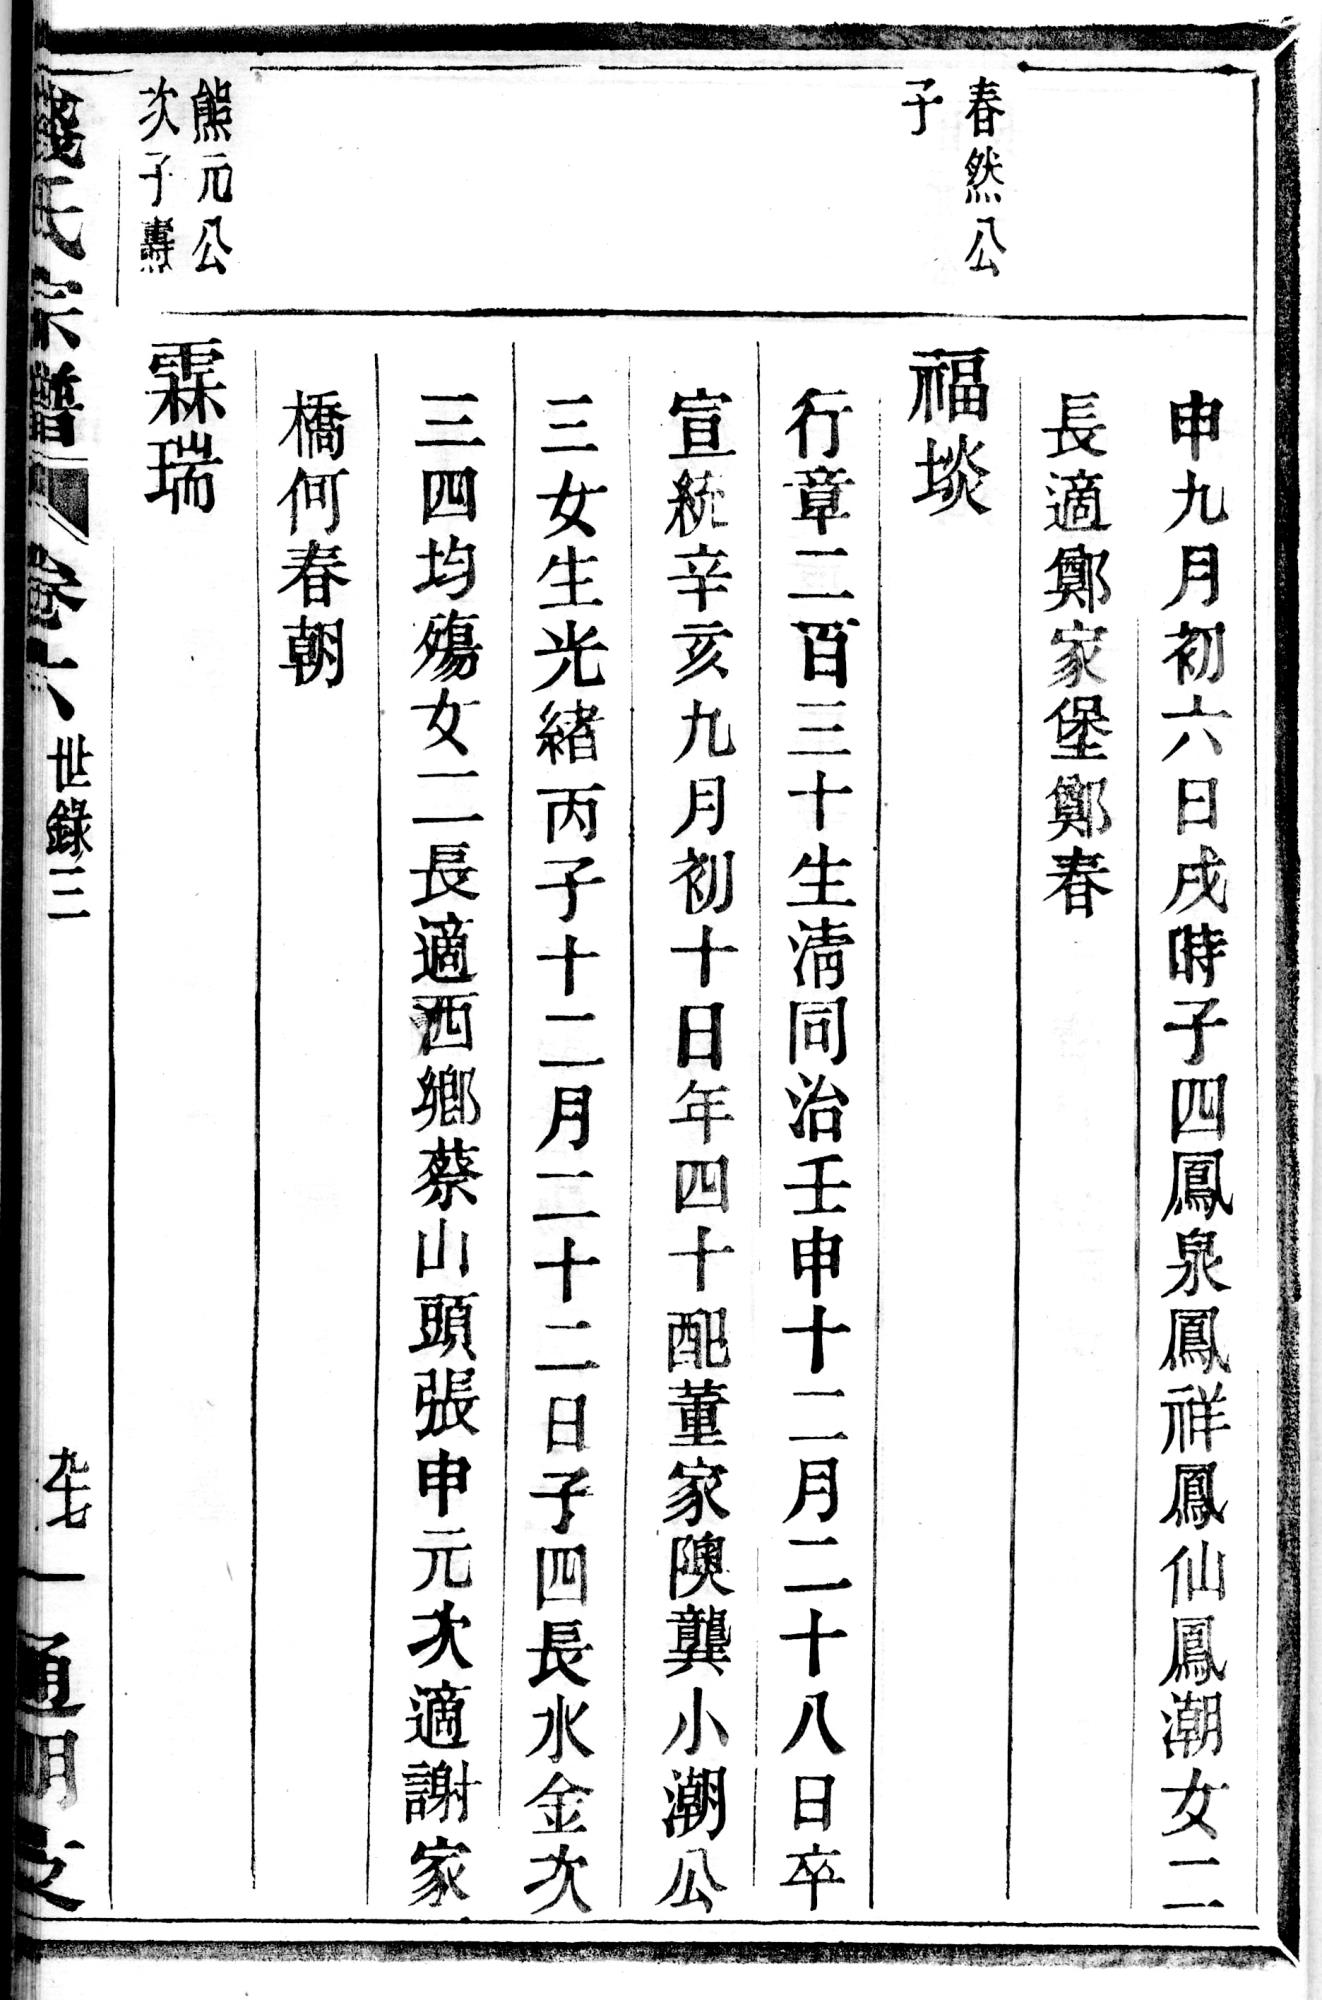 申九月初六日戌時子四鳳泉鳳祥鳳仙鳳潮女二
長適鄭家堡鄭春
春然公
子
福埮
行章二百三十生清同治壬申十二月二十八日卒
宣統辛亥九月初十日年四十配董家隩龔小潮公
三女生光緒丙子十二月二十二日子四長水金次
三四均殤女二長適西鄉蔡山頭張申元次適謝家
橋何春朝
熊元公
次子燾
霖瑞
錢氏宗譜 卷六 世錄三 九七 一 通明支